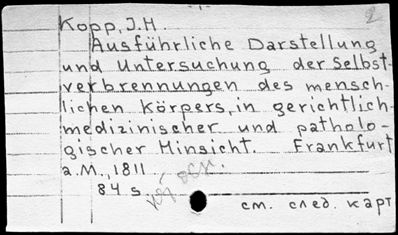 Kopp, J.H.
Ausführliche Darstellung
und Untersuchung der Selbst-
verbrennungen des mensch-
lichen Körpers, in gerichtlich-
medizinischer und patholo-
gischer Hinsicht. Frankfurt
a.M., 1811.
84 s.
см. след. карт